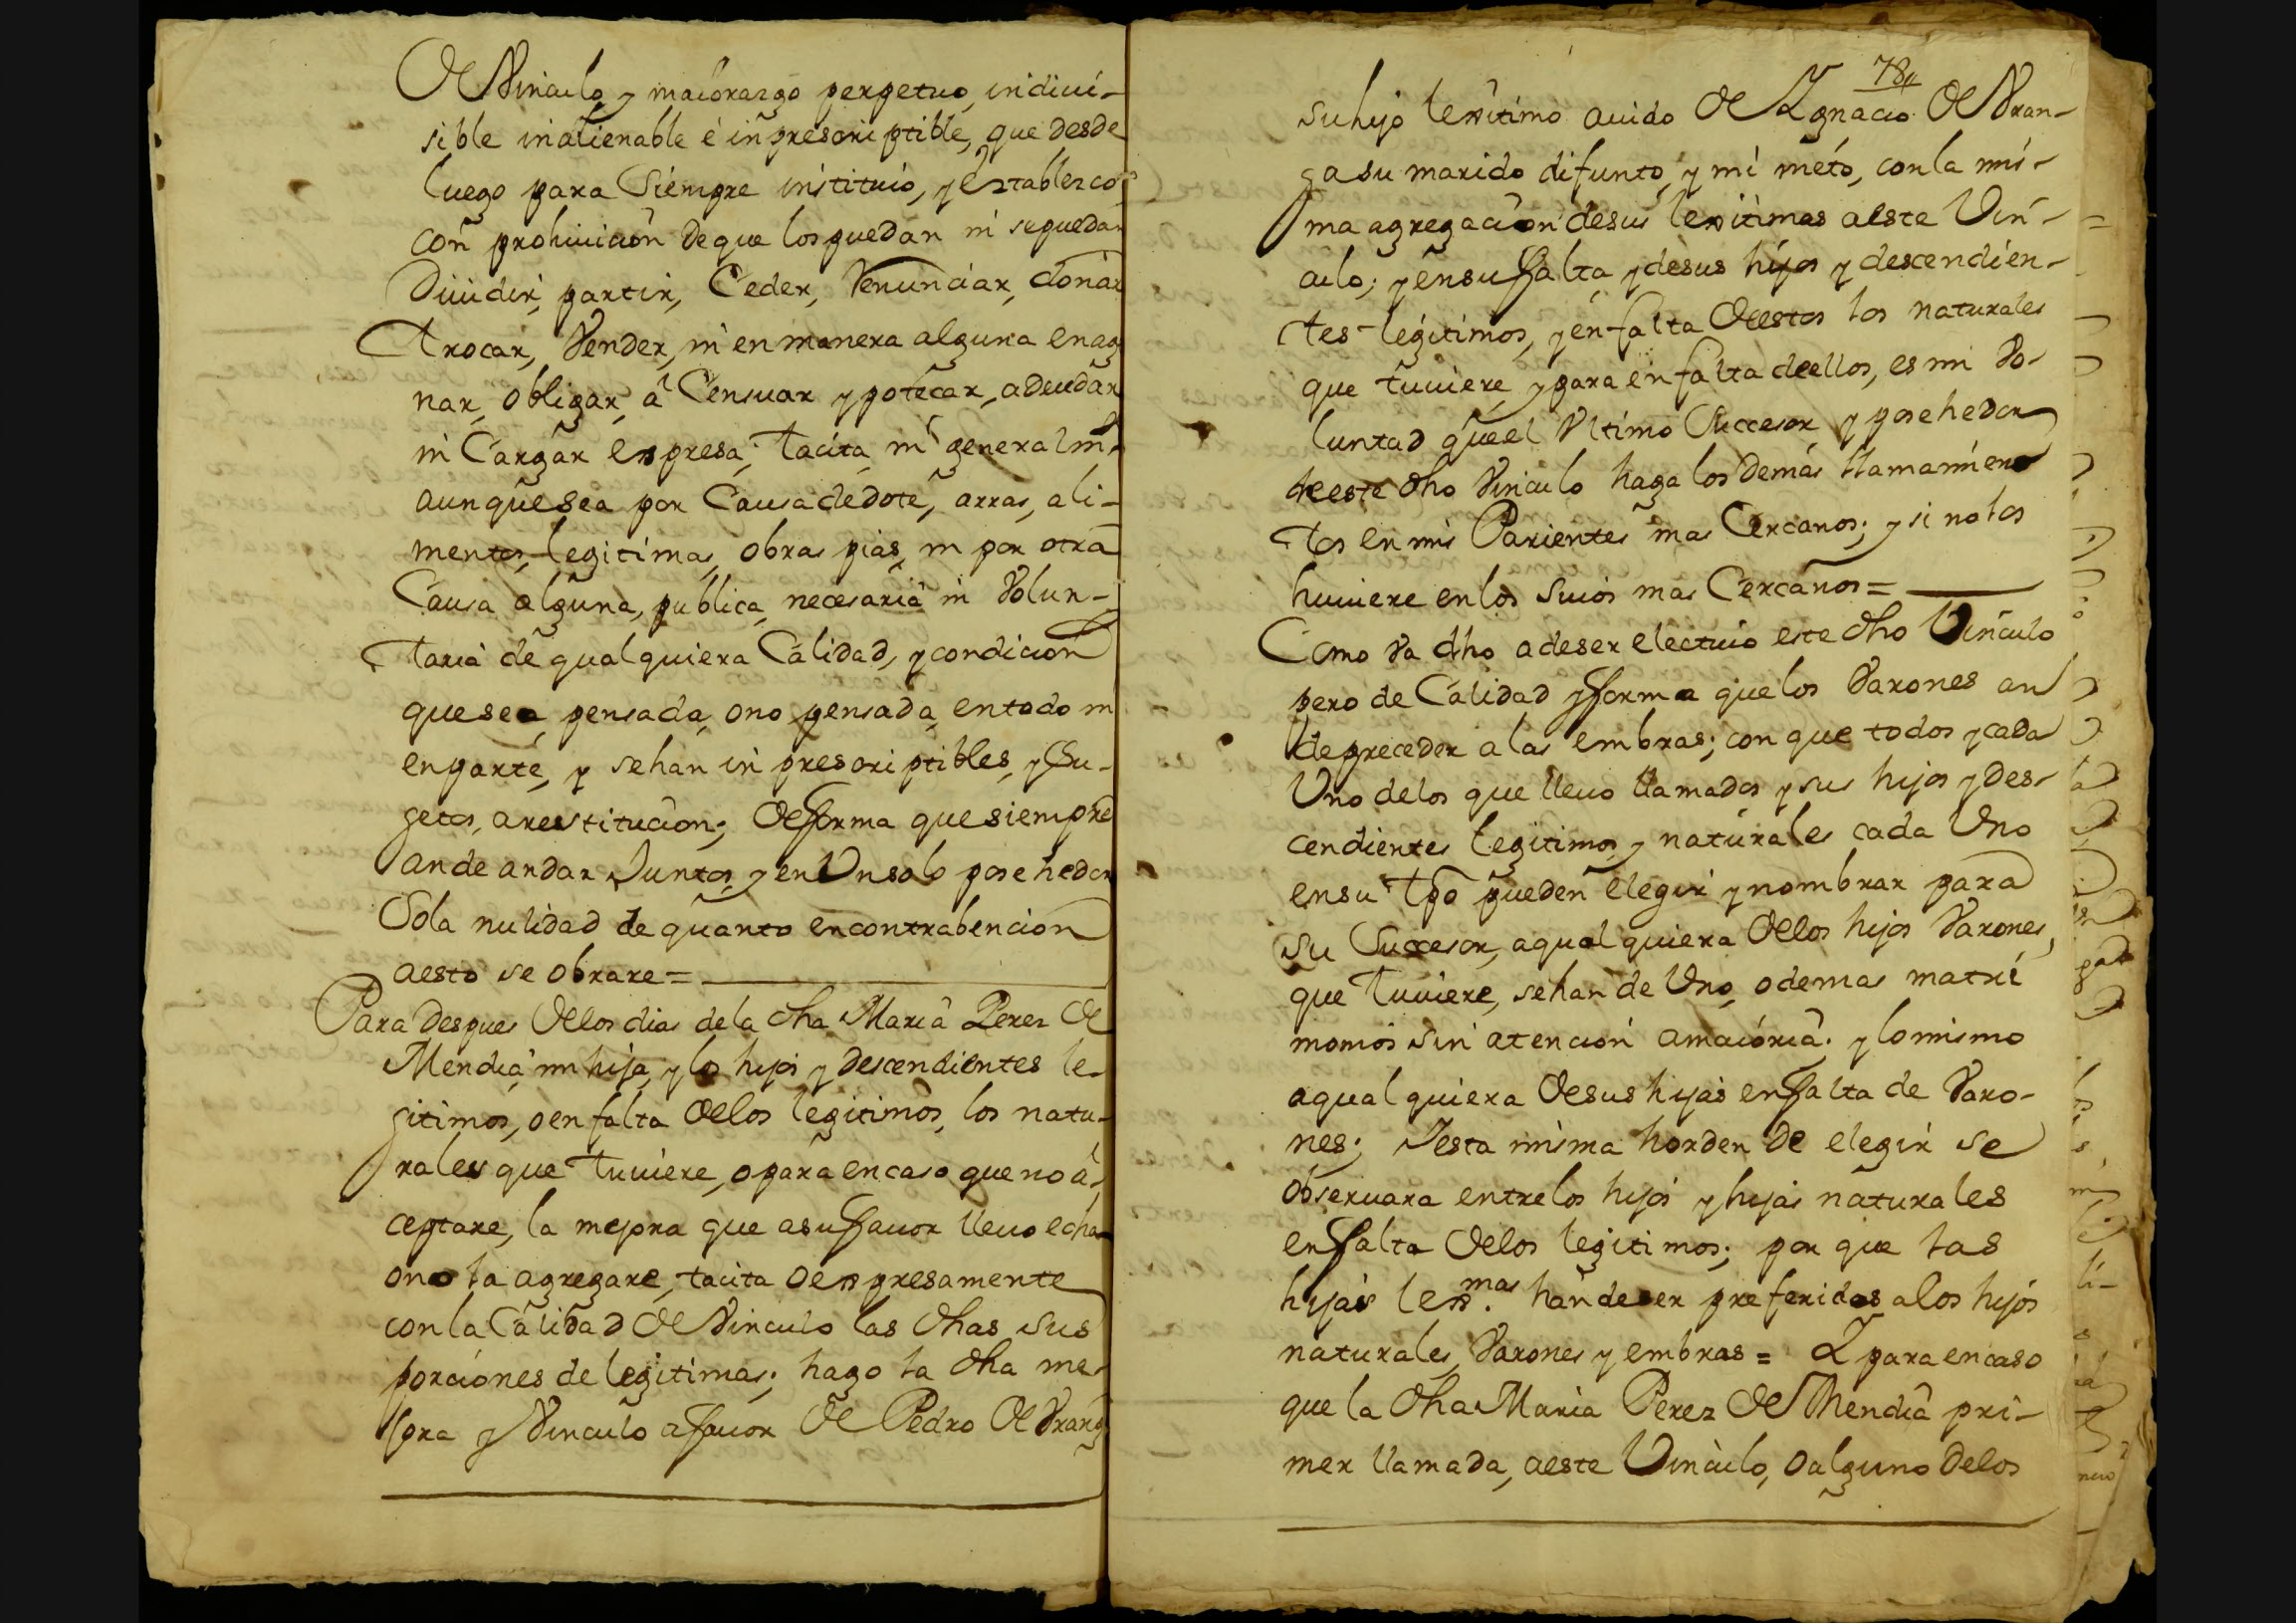 De Vinculo y maiorazgo perpetuo, indiui-
sible inalienable é inpresoriptible, que desde
luego para Siempre instituio, y establezco
con prohiuicion de que los puedan ni se puedan
Diuidir, partir, Ceder, Renunciar, donar
trocar, Vender, ni en manera alguna enag
nar, obligar, â Censuar ypotecar, adeudar
ni Cargar expresa, tacita, ni generalmte
aunque sea por Causa de dote, arras, ali-
mentos, legitimas, obras pias, ni por otra
Causa alguna, publica, necesaria ni Volun-
taria de qualquiera Calidad, y condicion
que sea, pensada, o no pensada, en todo ni
en parte, y se han inpresoriptibles, y Su-
getos, a restitucion; de forma que siempre
an de andar Juntos, y en Un solo posehedor
Sola nulidad de quanto en contrabencion
a esto se obrare =
Para despues de los dias de la dha Maria Perez de
Mendia mi hija, y los hijos y descendientes le-
gitimos, o en falta de los legitimos, los natu-
rales que tuuiere, o para en caso que no â-
ceptare, la mejora que a su fauor lleuo echa
o no la agregare, tacita o expresamente
con la Calidad de Vinculo las dhas sus
porciones de legitimas; hago la dha me-
jora y Vinculo a fauor de Pedro de Vrang
78
su hijo lexitimo auido de Ygnacio de Vran-
ga su marido difunto, y mi nieto, con la mis-
ma agregacion de sus lexitimas a este Vin-
culo; y en su falta, y de sus hijos y descendien-
tes legitimos, y en falta de estos los naturales
que tuuiere, y para en falta de ellos, es mi Vo-
luntad que el Vltimo Succesor, y posehedor
de este dho Vinculo haga los demas llamamien
tos en mis Parientes mas Cercanos; y si no los
huuiere en los Suios mas Cercanos =
Como va dho a de ser electiuo este dho Vinculo
pero de Calidad y forma que los Varones an
de preceder a las embras; con que todos y cada
Uno de los que lleuo llamados y sus hijos y des-
cendientes legitimos y naturales cada Uno
en su tpo pueden elegir y nombrar para
su Succesor, a qualquiera de los hijos Varones,
que tuuiere, se han de Uno, o de mas matri
monios sin atencion a maioria; y lo mismo
a qualquiera de sus hijas en falta de Varo-
nes; Y esta misma horden de elegir se
obseruara entre los hijos y hijas naturales
en falta de los legitimos; por que las
hijas lexmas han de ser preferidas a los hijos
naturales, Varones y embras = Y para en caso
que la dha Maria Perez de Mendia pri-
mer llamada, a este Vinculo, o alguno de los